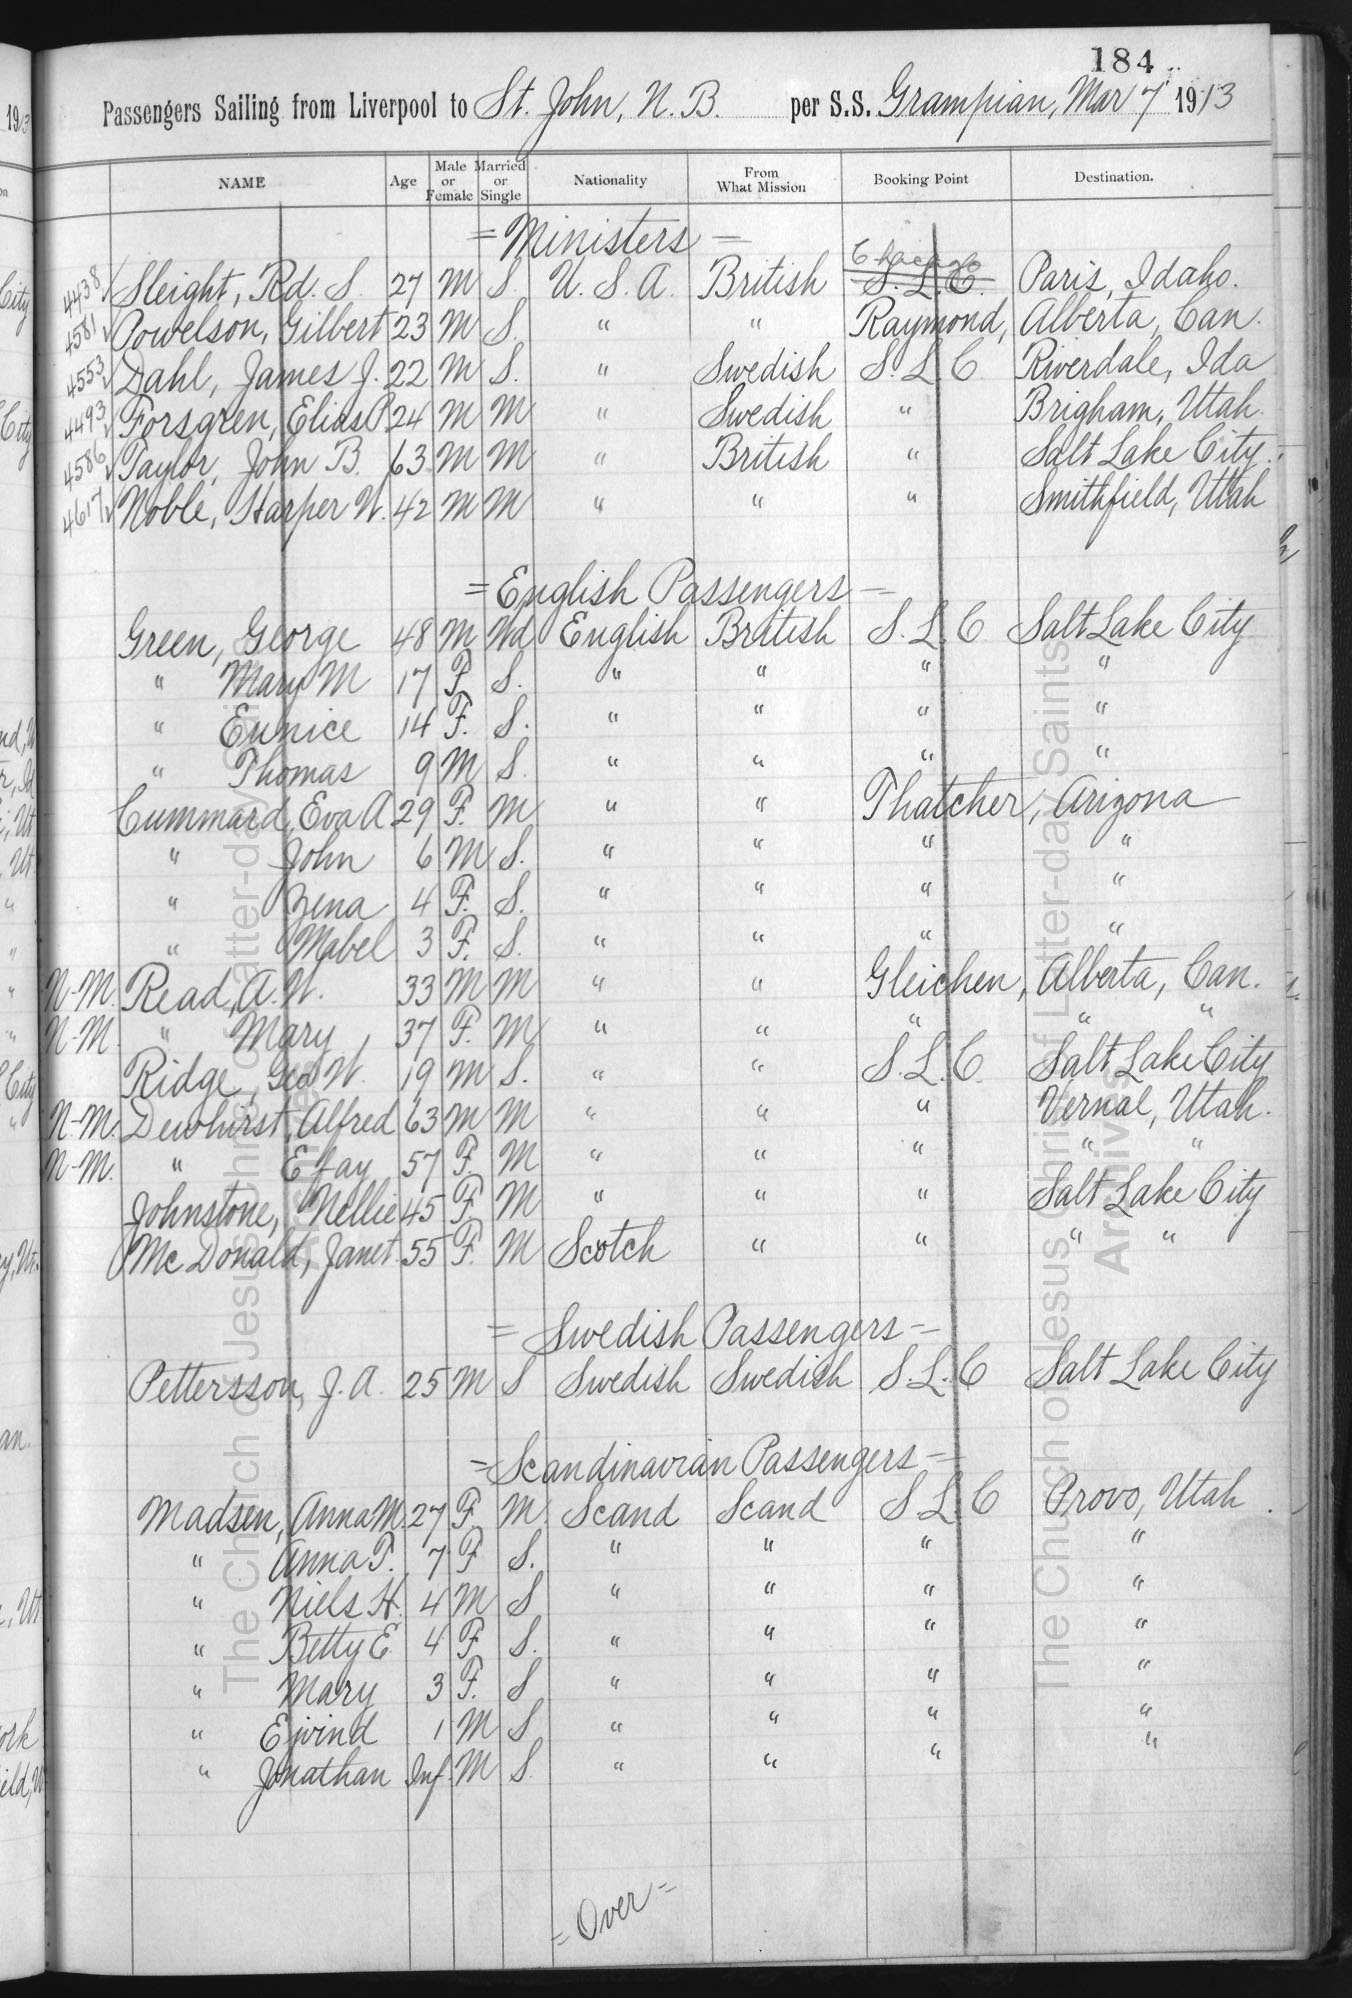 184
Passengers Sailing from Liverpool to St. John, N. B. per S.S. Grampian, Mar 7 1913
NAME Age Male or Female Married or Single Nationality From What Mission Booking Point Destination.
= Ministers =
Chicago
4438 Sleight, Rd. S. 27 M S. U. S. A. British S. L. C. Paris, Idaho.
4581 Powelson, Gilbert 23 M S. " " Raymond, Alberta, Can.
4553 Dahl, James J. 22 M S. " Swedish S. L. C Riverdale, Ida
4493 Forsgren, Elias P. 24 M M " Swedish " Brigham, Utah.
4586 Taylor, John B. 63 M M " British " Salt Lake City.
4617 Noble, Harper W. 42 M M " " " Smithfield, Utah
= English Passengers =
Green, George 48 M Wd English British S. L. C Salt Lake City
" Mary M 17 F S. " " " "
" Eunice 14 F. S. " " " "
" Thomas 9 M S. " " " "
Cummard, Eva A 29 F. M " " Thatcher, Arizona
" John 6 M S. " " " "
" Zena 4 F. S. " " " "
" Mabel 3 F. S. " " " "
N-M. Read, A. W. 33 M M " " Gleichen, Alberta, Can.
N-M. " Mary 37 F. M " " " " "
Ridge, Geo W. 19 M S. " " S. L. C. Salt Lake City
N-M. Dewhirst, Alfred 63 M M " " " Vernal, Utah.
N-M. " Efay 57 F. M " " " " "
Johnstone, Nellie 45 F. M " " " Salt Lake City
McDonald, Janet 55 F. M Scotch " " " "
= Swedish Passengers =
Pettersson, J. A. 25 M S Swedish Swedish S. L. C Salt Lake City
= Scandinavian Passengers =
Madsen, Anna M. 27 F M. Scand Scand S. L. C Provo, Utah
" Anna P. 7 F S. " " " "
" Niels H. 4 M S " " " "
" Betty E. 4 F S. " " " "
" Mary 3 F. S " " " "
" Ejvind 1 M S. " " " "
" Jonathan Inf. M S. " " " "
= Over =
The Church of Jesus Christ of Latter-day Saints
Archives
The Church of Jesus Christ of Latter-day Saints
Archives